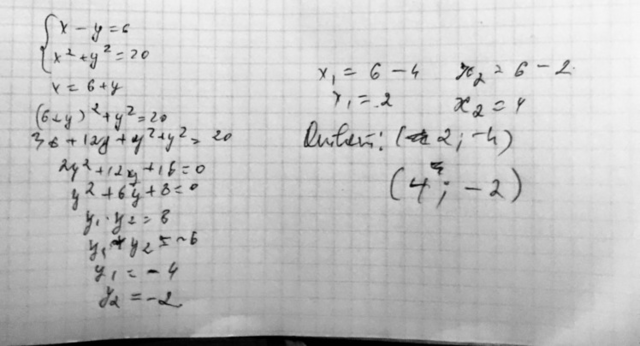 x - y = 6
x² + y² = 20
x = 6 + y
(6 + y)² + y² = 20
36 + 12y + y² + y² = 20
2y² + 12y + 16 = 0
y² + 6y + 8 = 0
y₁ · y₂ = 8
y₁ + y₂ = -6
y₁ = -4
y₂ = -2
x₁ = 6 - 4
x₁ = 2
x₂ = 6 - 2
x₂ = 4
Ответ: (2; -4)
(4; -2)